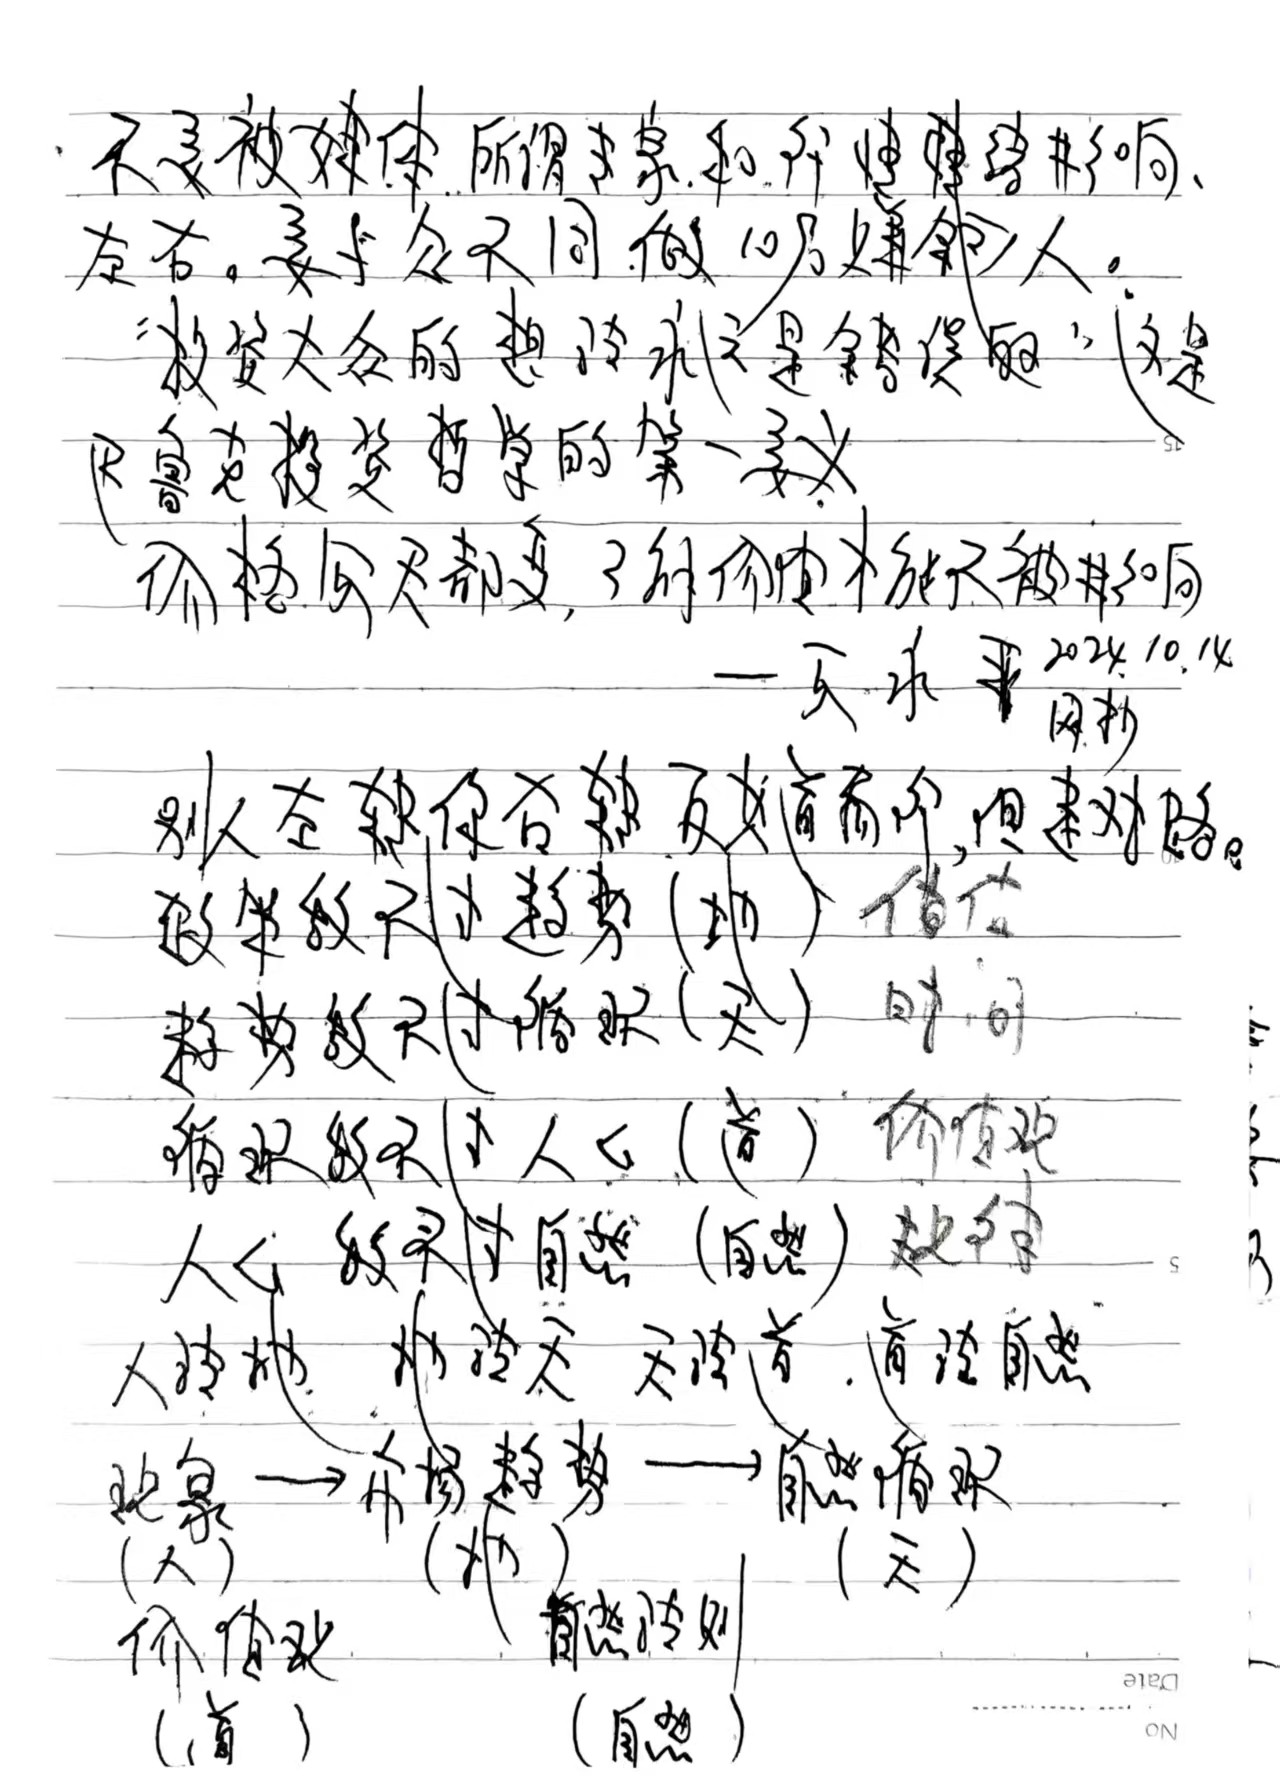 不要被媒体所谓专家和行情等影响、
左右。要与众不同做10%赚钱人。
“投资大众的想法永远是错误的”这是
巴鲁克投资哲学的第一要义
价格每天都变,了解价值才能不被影响
— 永平 2024.10.14
网抄
别人左 你右 反其道而行,但走对路。
政策敌不过趋势(地) 价位
趋势敌不过循环(天) 时间
循环敌不过人心(道) 价值观
人心敌不过自然(自然) 规律
人法地 地法天 天法道.道法自然
现象→市场趋势→自然循环
(人) (地) (天)
价值观 自然法则
(道) (自然)
5
Date
No